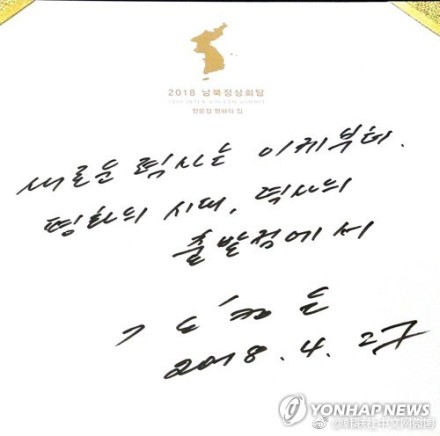 2018 남북정상회담
2018 INTER-KOREAN SUMMIT
판문점 평화의 집
새로운 력사는 이제부터.
평화의 시대, 력사의
출발점에서
김정은
2018. 4. 27
YONHAP NEWS